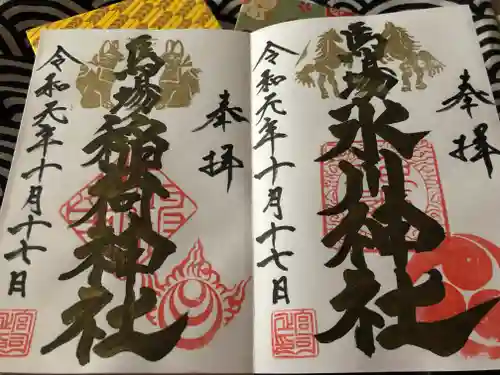 奉拝
馬場氷川神社
令和元年十月十七日
奉拝
馬場稲荷神社
令和元年十月十七日
宮司之印
宮司之印